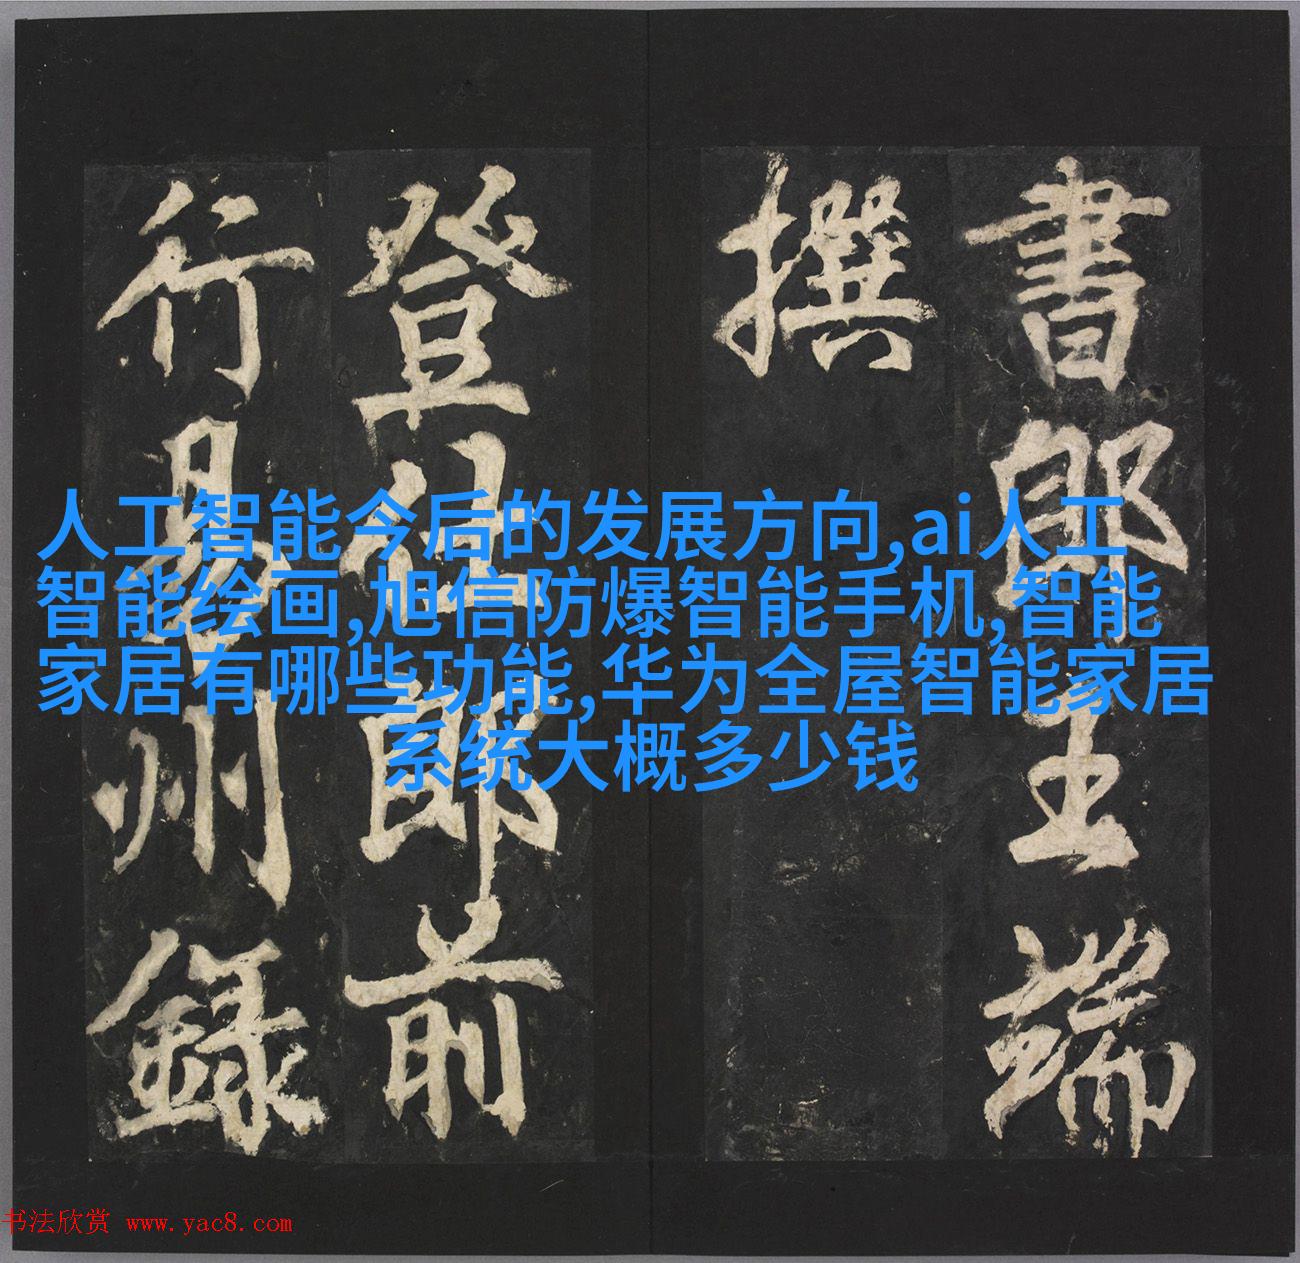 書郎王端
撰
登仕郎前
行易州錄
人工智能今后的发展方向,ai人工
智能绘画,旭信防爆智能手机,智能
家居有哪些功能,华为全屋智能家居
系统大概多少钱
书法欣赏 www.yac8.com